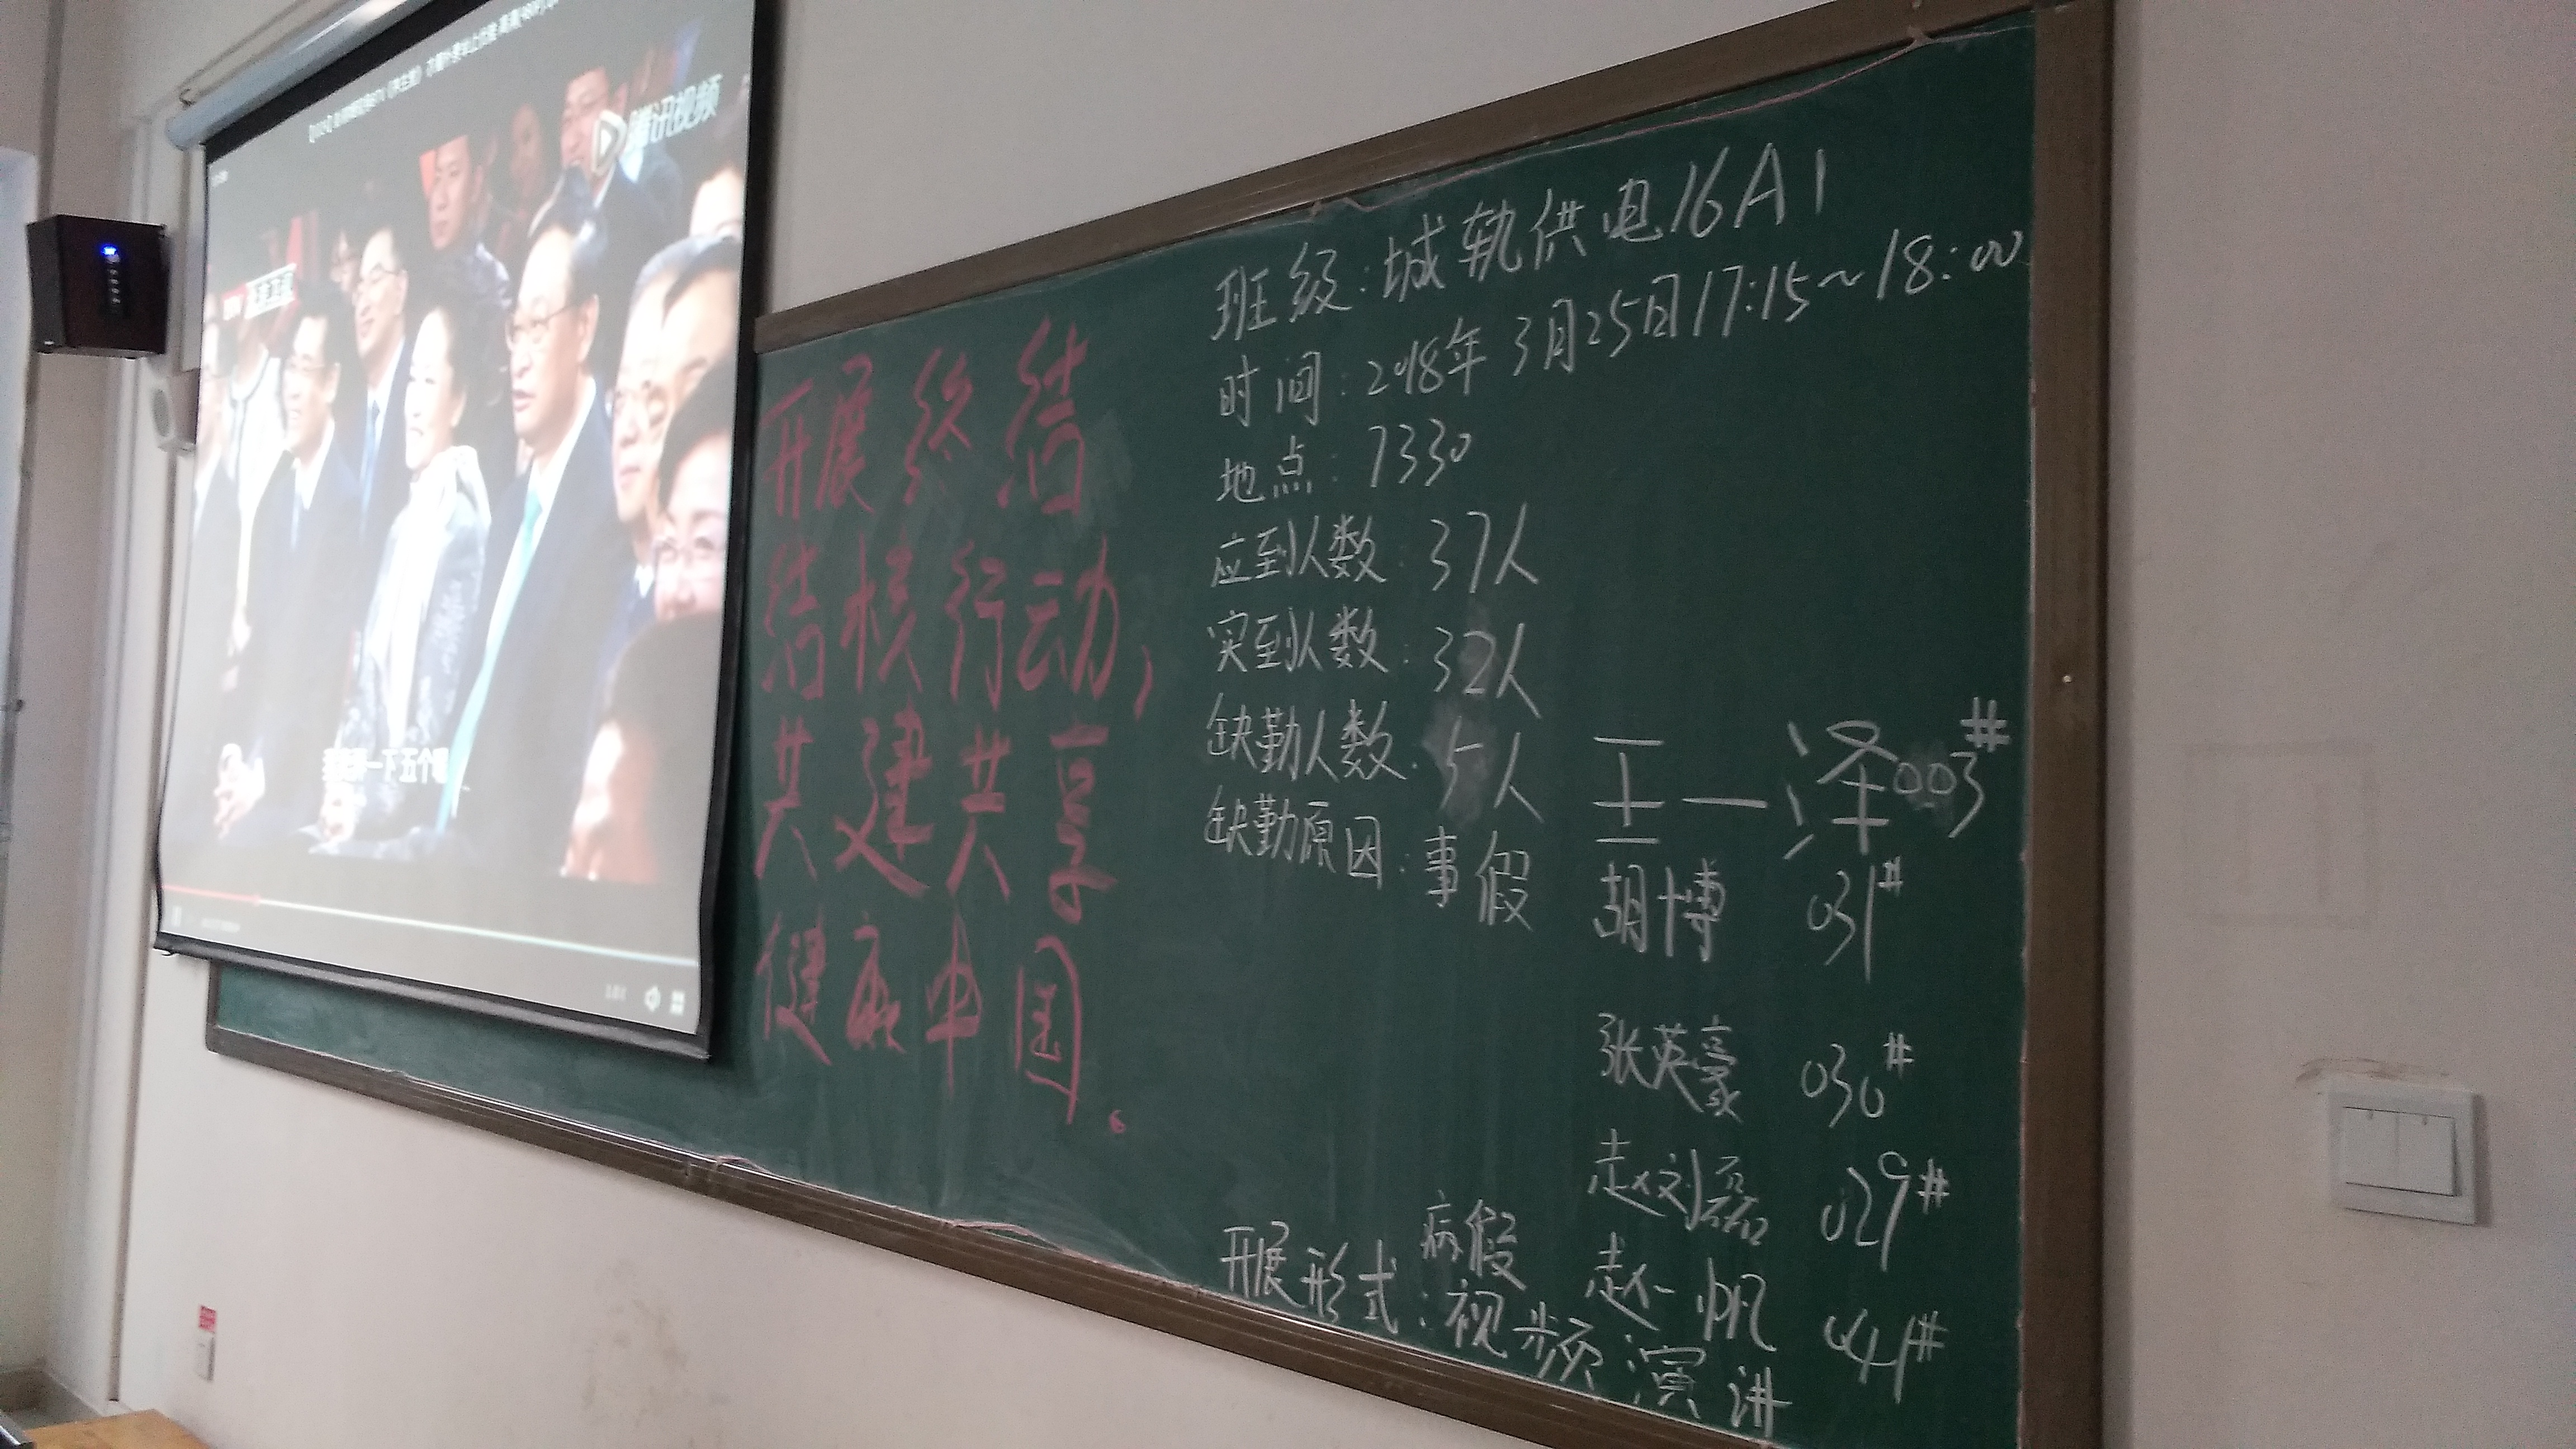 腾讯视频
一下五个
开展终结
结核行动，
共建共享
健康中国。
班级：城轨供电16A1
时间：2018年3月25日17:15~18:00
地点：7330
应到人数：37人
实到人数：32人
缺勤人数：5人
缺勤原因：事假 王一泽003#
胡博 031#
张英豪 030#
赵刘磊 029#
病假 赵一帆 041#
开展形式：视频演讲